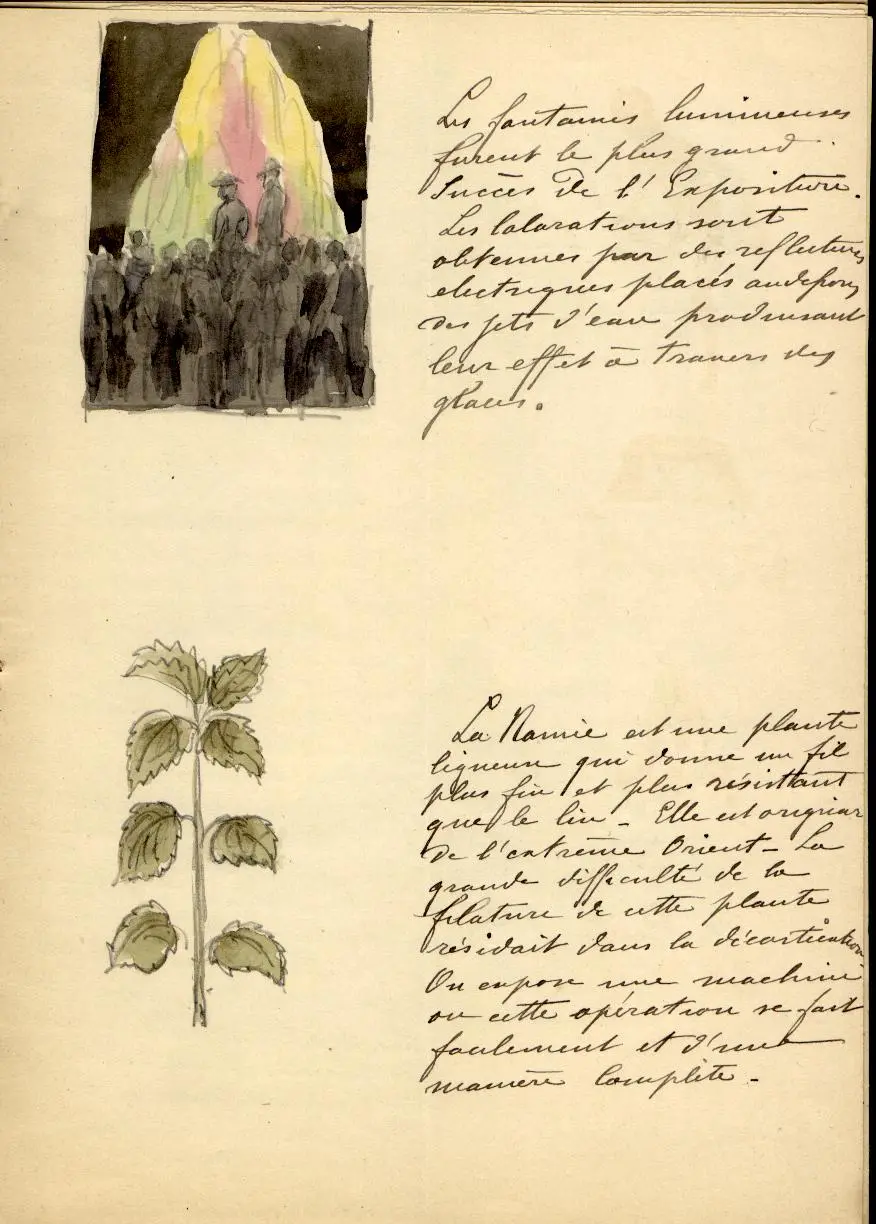 Les fontaines lumineuses
furent le plus grand
Succès De l'Exposition.
Les Colorations sont
obtenues par des reflecteurs
electriques placés audessous
des jets d'eau produisant
leur effet à travers des
glaces.
La Ramie est une plante
ligneuse qui donne un fil
plus fin et plus résistant
que le lin - Elle est originaire
de l'extrème Orient - La
grande difficulté de la
filature de cette plante
résidait dans la décortication
On expose une machine
ou cette opération se fait
facilement et d'une
manière Complète -